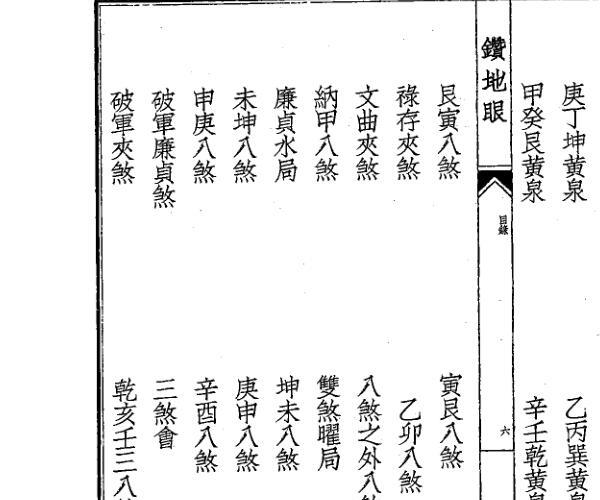 庚丁坤黃泉　乙丙巽黃泉
甲癸艮黃泉　辛壬乾黃泉
鑽地眼　目錄　六
艮寅八煞　寅艮八煞
祿存夾煞　乙卯八煞
文曲夾煞　八煞之外八
納甲八煞　雙煞曜局
廉貞水局　坤未八煞
未坤八煞　庚申八煞
申庚八煞　辛酉八煞
破軍廉貞煞　三煞會
破軍夾煞　乾亥壬三八